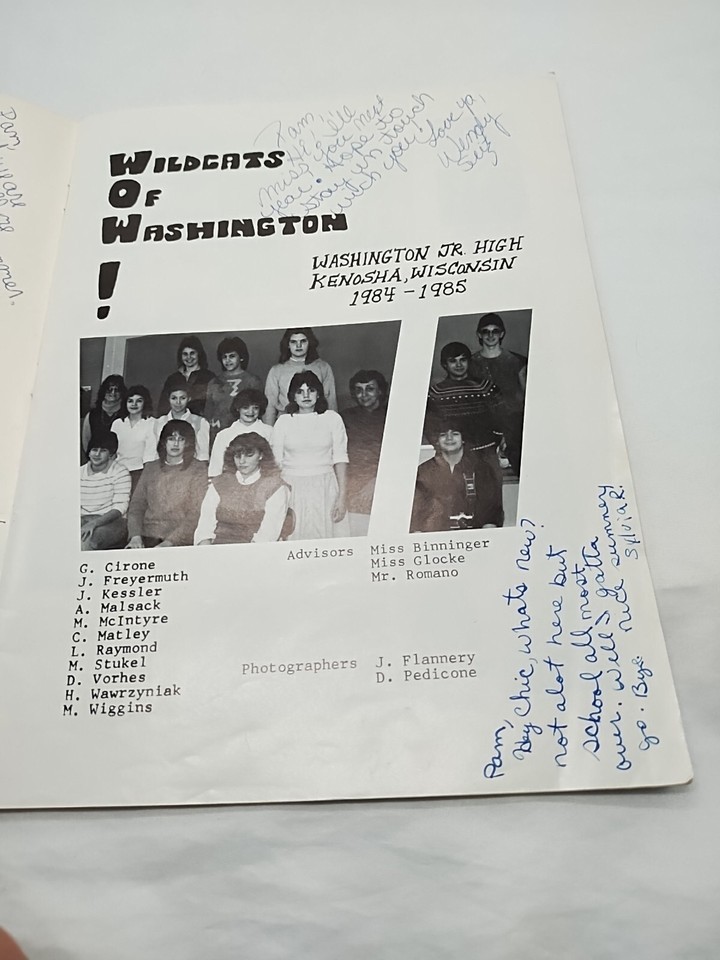 Wildcats
Of
Washington
!
Pam,
He, I'll
miss you next
year. Hope to
stay in touch
with you!
Love ya,
Wendy
Washington Jr. High
Kenosha, Wisconsin
1984 - 1985
G. Cirone
J. Freyermuth
J. Kessler
A. Malsack
M. McIntyre
C. Matley
L. Raymond
M. Stukel
D. Vorhes
H. Wawrzyniak
M. Wiggins
Advisors Miss Binninger
Miss Glocke
Mr. Romano
Photographers J. Flannery
D. Pedicone
Pam,
Hey Chic, whats new?
not alot here but
school all most
over. Well I gatta
go. Bye nice summer
Sylvia R.